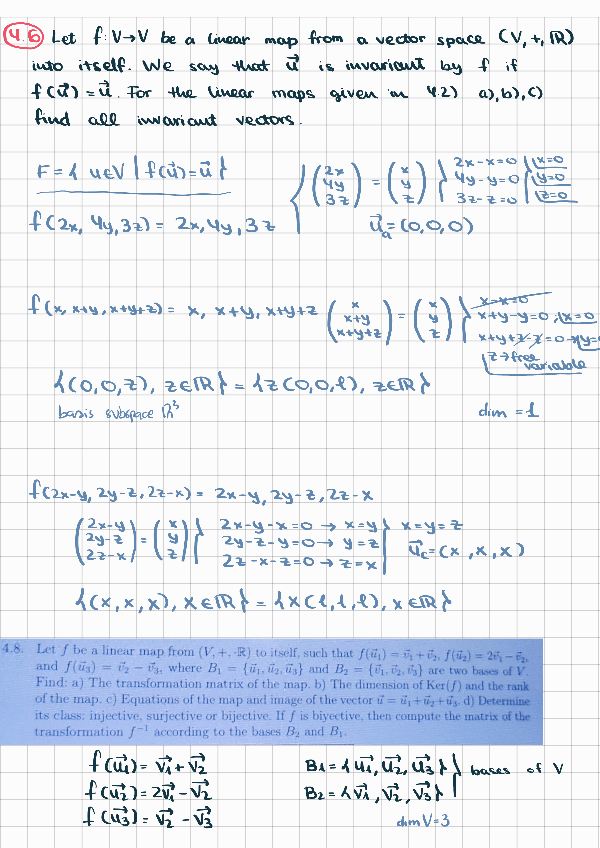 4.6 Let f: V→V be a linear map from a vector space (V, +, ℝ)
into itself. We say that u⃗ is invariant by f if
f(u⃗) = u⃗. For the linear maps given in 4.2) a), b), c)
find all invariant vectors.
F = { u∈V | f(u⃗) = u⃗ }
f(2x, 4y, 3z) = 2x, 4y, 3z
{ (2x 4y 3z) = (x y z) }
2x-x=0 | x=0
4y-y=0 | y=0
3z-z=0 | z=0
u⃗a = (0,0,0)
f(x, x+y, x+y+z) = x, x+y, x+y+z
(x x+y x+y+z) = (x y z) }
x-x=0
x+y-y=0 ; x=0
x+y+z-z=0 → y=0
z → free variable
{(0,0,z), z∈ℝ} = {z(0,0,1), z∈ℝ}
basis subspace ℝ³
dim = 1
f(2x-y, 2y-z, 2z-x) = 2x-y, 2y-z, 2z-x
(2x-y 2y-z 2z-x) = (x y z) }
2x-y-x=0 → x=y
2y-z-y=0 → y=z
2z-x-z=0 → z=x
x=y=z
u⃗c = (x, x, x)
{(x, x, x), x∈ℝ} = {x(1,1,1), x∈ℝ}
4.8. Let f be a linear map from (V, +, ·ℝ) to itself, such that f(u⃗1) = v⃗1 + v⃗2, f(u⃗2) = 2v⃗1 − v⃗2,
and f(u⃗3) = v⃗2 − v⃗3, where B1 = {u⃗1, u⃗2, u⃗3} and B2 = {v⃗1, v⃗2, v⃗3} are two bases of V.
Find: a) The transformation matrix of the map. b) The dimension of Ker(f) and the rank
of the map. c) Equations of the map and image of the vector u⃗ = u⃗1 + u⃗2 + u⃗3. d) Determine
its class: injective, surjective or bijective. If f is biyective, then compute the matrix of the
transformation f⁻¹ according to the bases B2 and B1.
f(u⃗1) = v⃗1 + v⃗2
f(u⃗2) = 2v⃗1 - v⃗2
f(u⃗3) = v⃗2 - v⃗3
B1 = {u⃗1, u⃗2, u⃗3} } bases of V
B2 = {v⃗1, v⃗2, v⃗3}
dim V=3